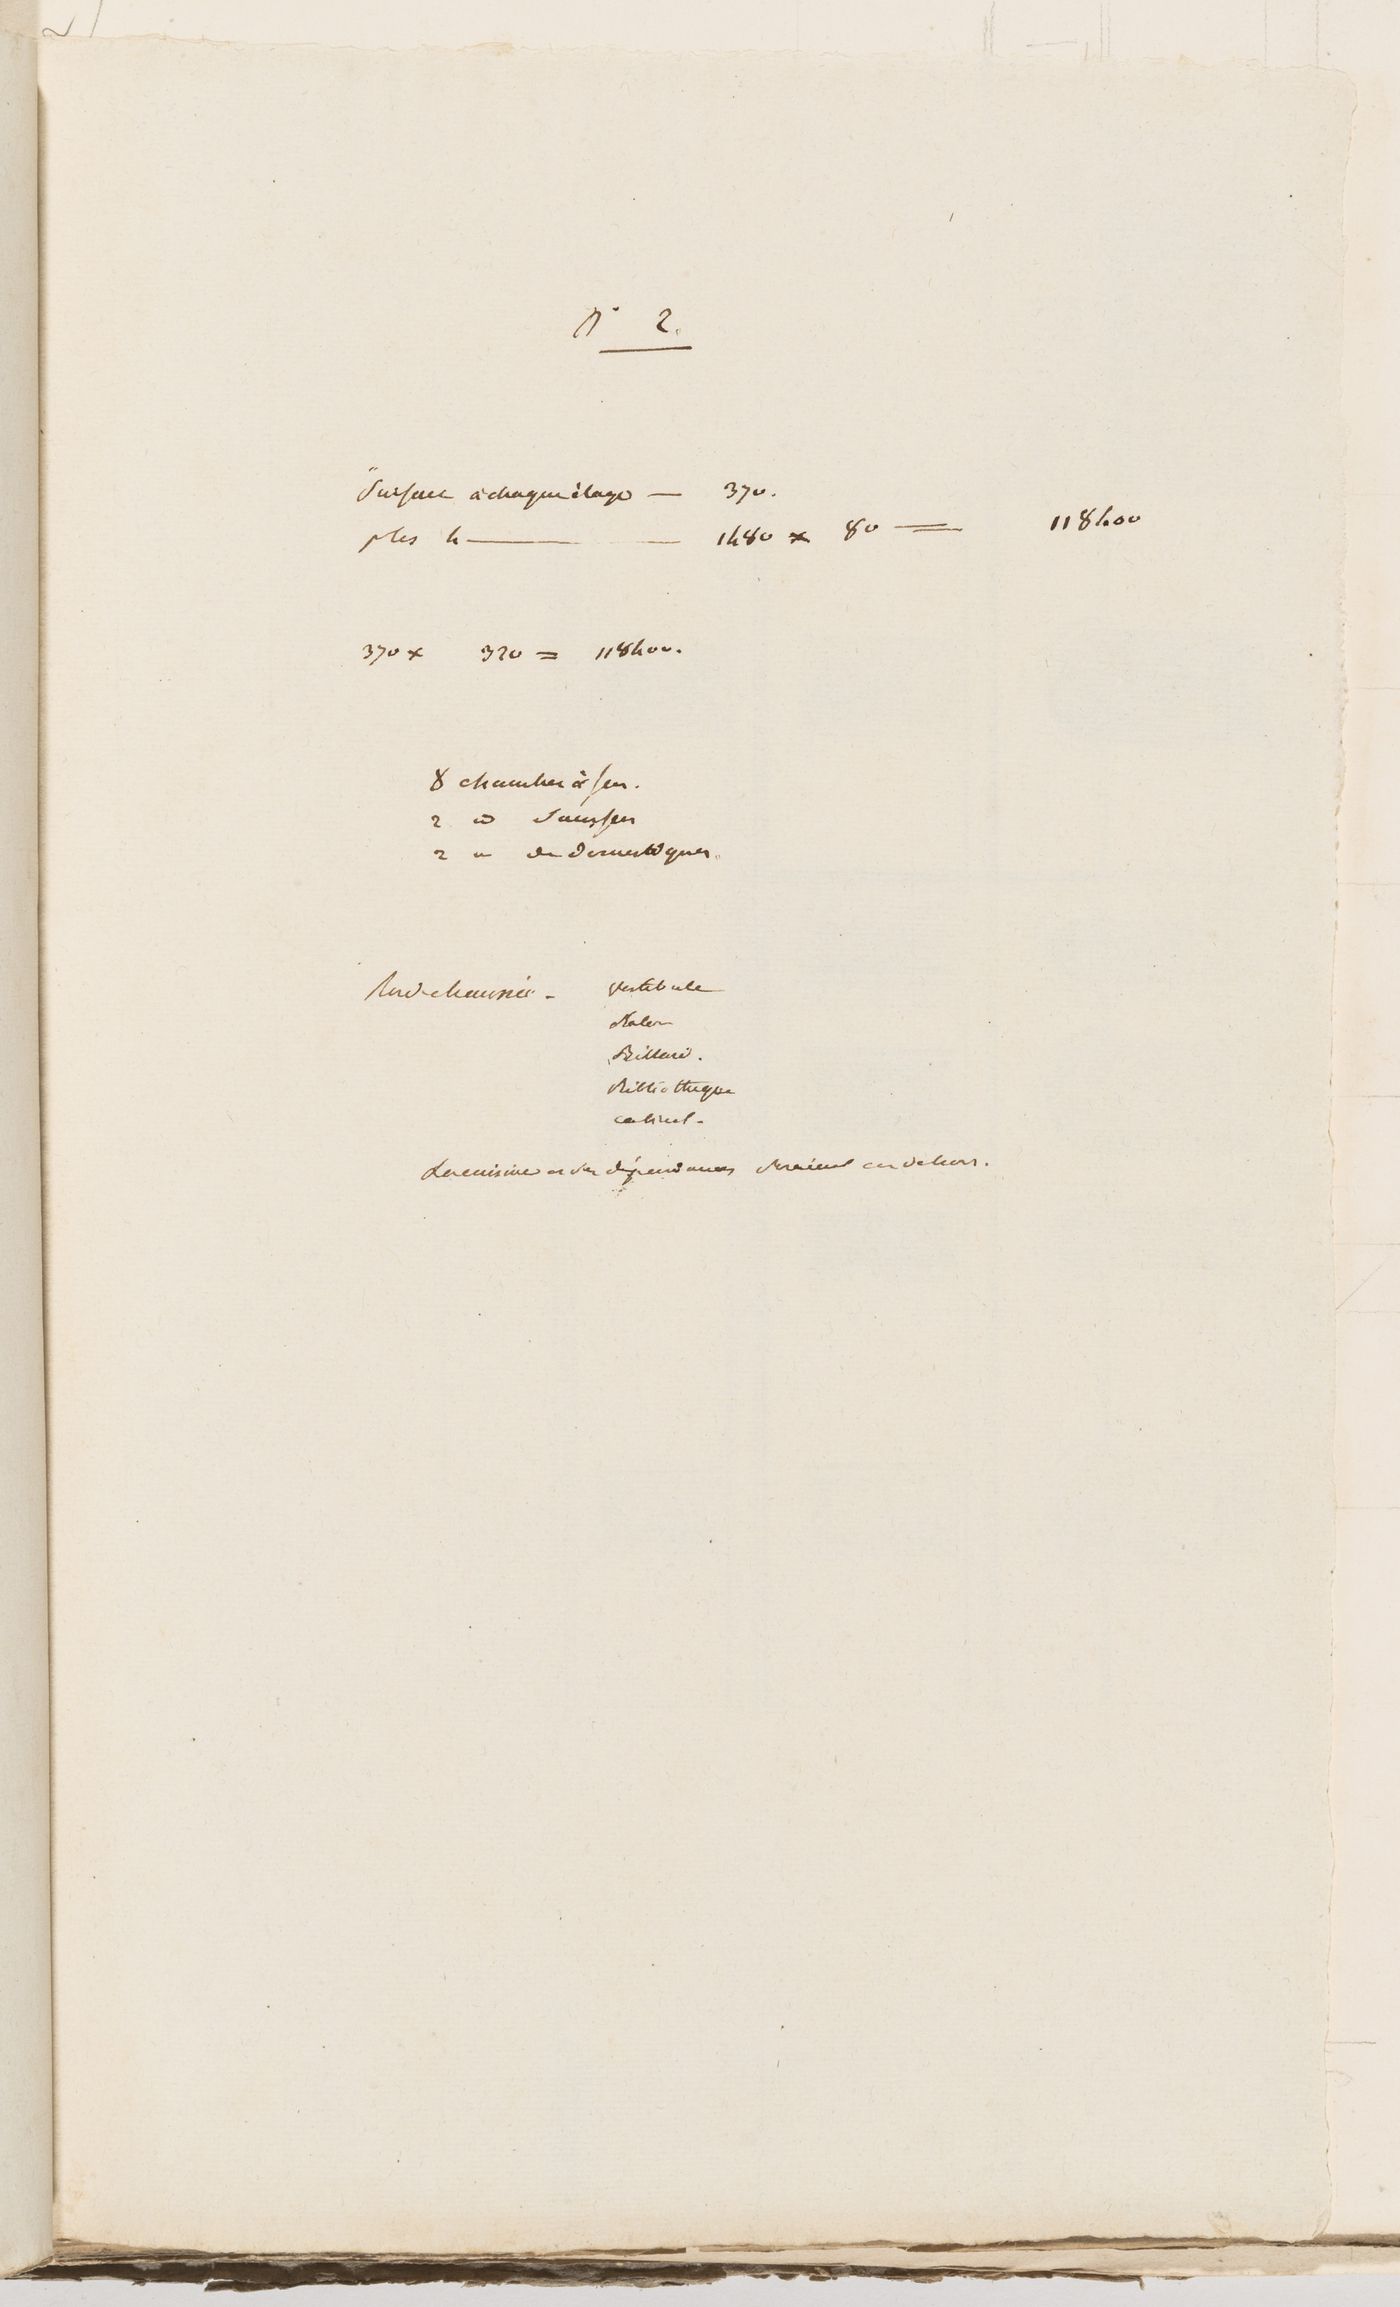 N° 2.
Surface à chaque étage — 370.
plus 4 — 1480 × 80 = 118400
370 × 320 = 118400.
8 chambres à feu.
2 id sans feu
2 id de domestiques.
Rez de chaussée - vestibule
Salon
Billard.
Bibliothèque
cabinet.
La cuisine et ses dépendances seraient en dehors.